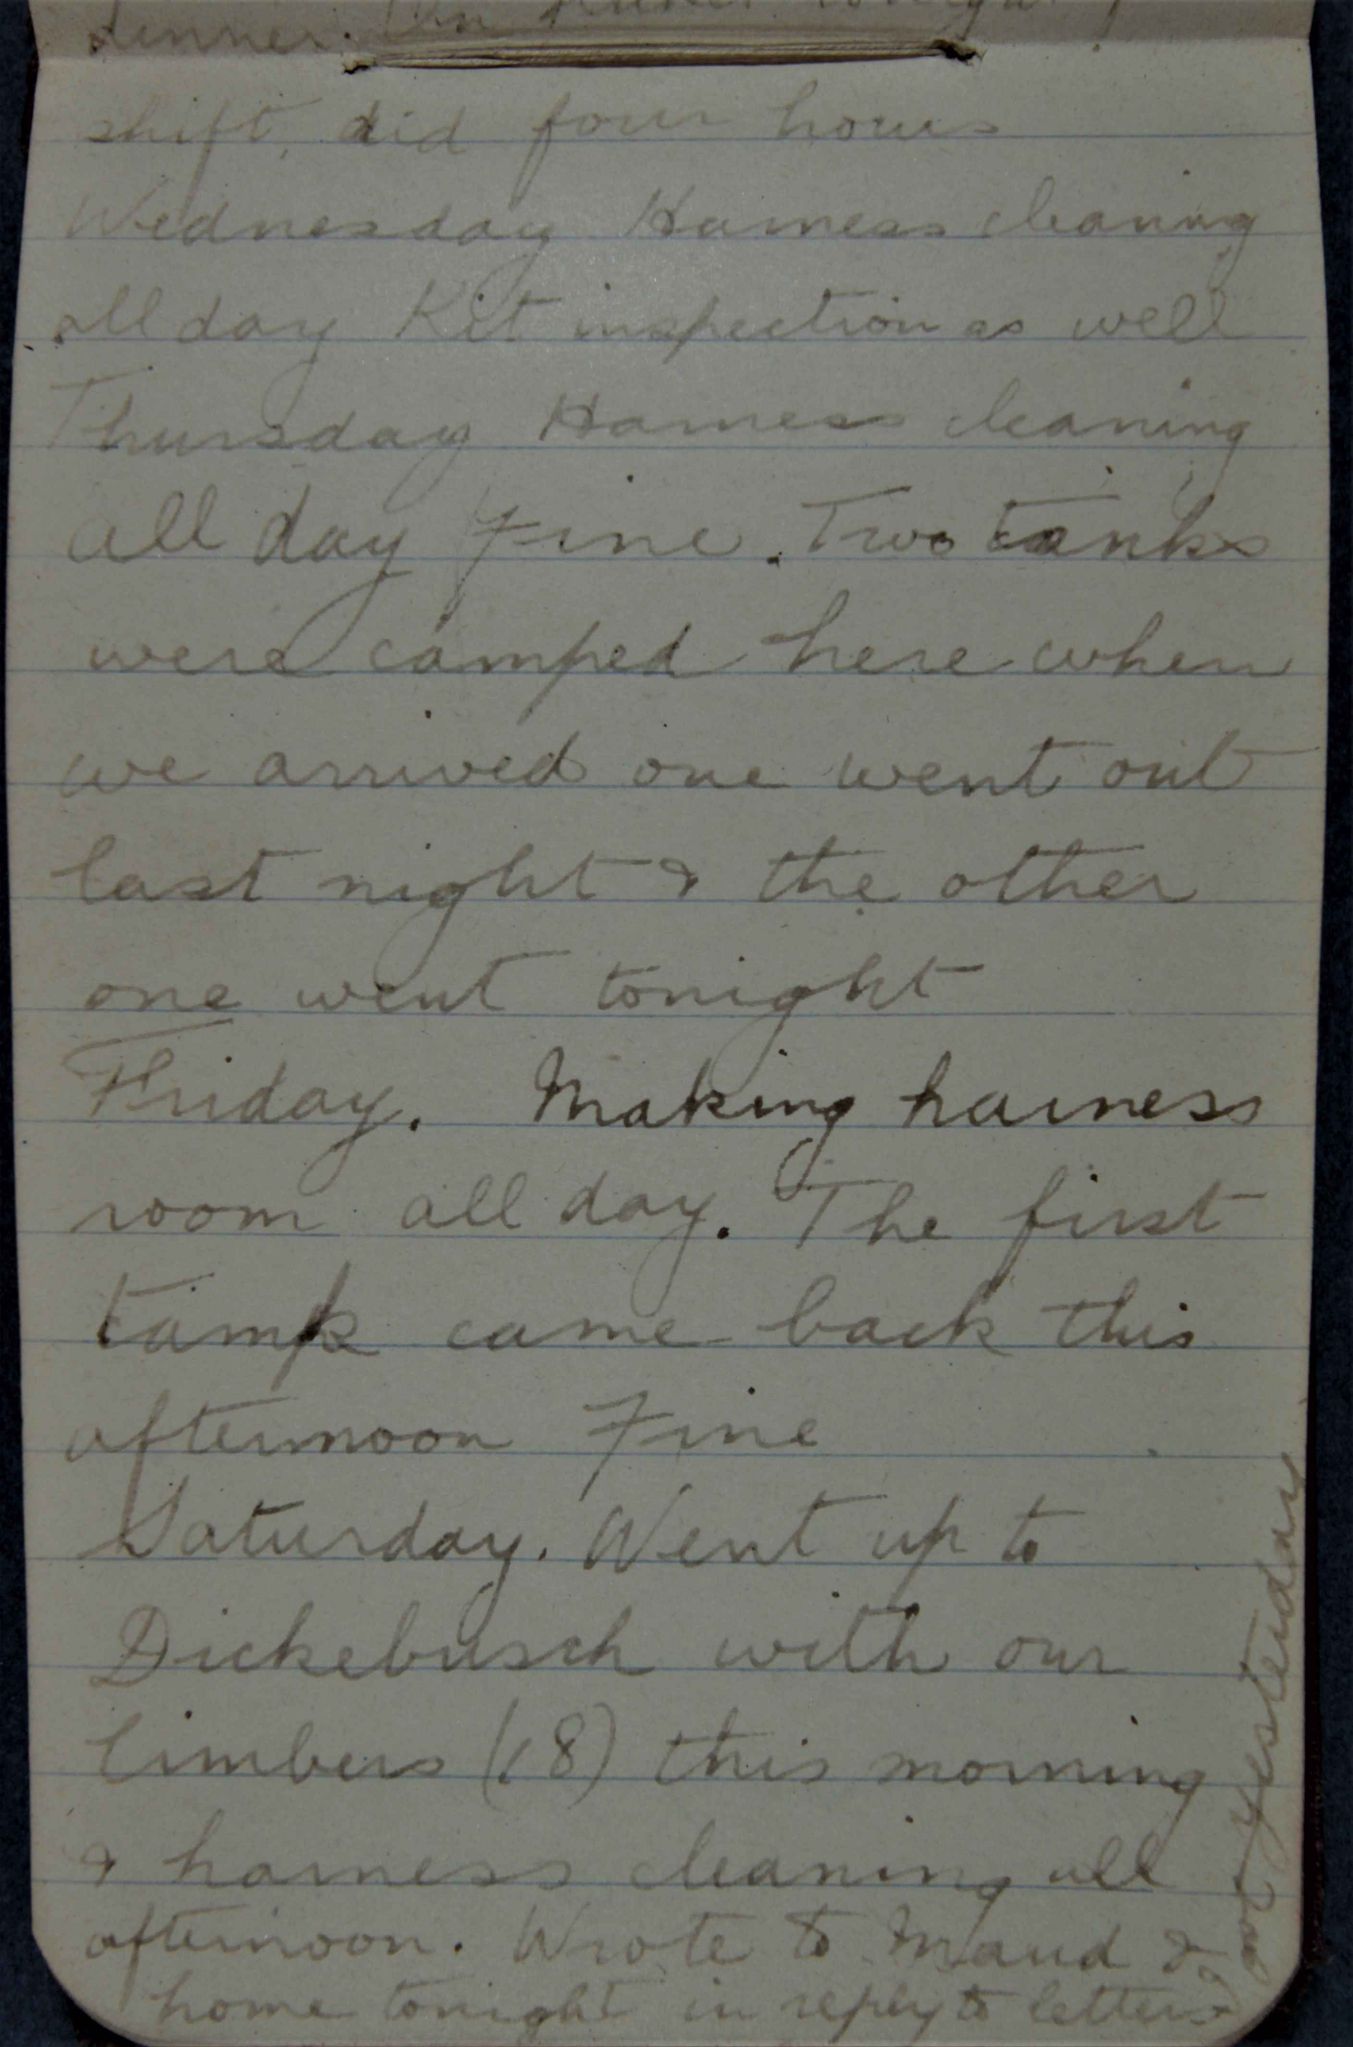 dinner. On
shift, did four hours
Wednesday Harness cleaning
all day Kit inspection as well
Thursday Harness cleaning
all day Fine. Two tanks
were camped here when
we arrived one went out
last night & the other
one went tonight
Friday. Making harness
room all day. The first
tank came back this
afternoon Fine
Saturday. Went up to
Dickebusch with our
limbers (18) this morning
& harness cleaning all
afternoon. Wrote to Maud &
home tonight in reply to letters
got yesterday